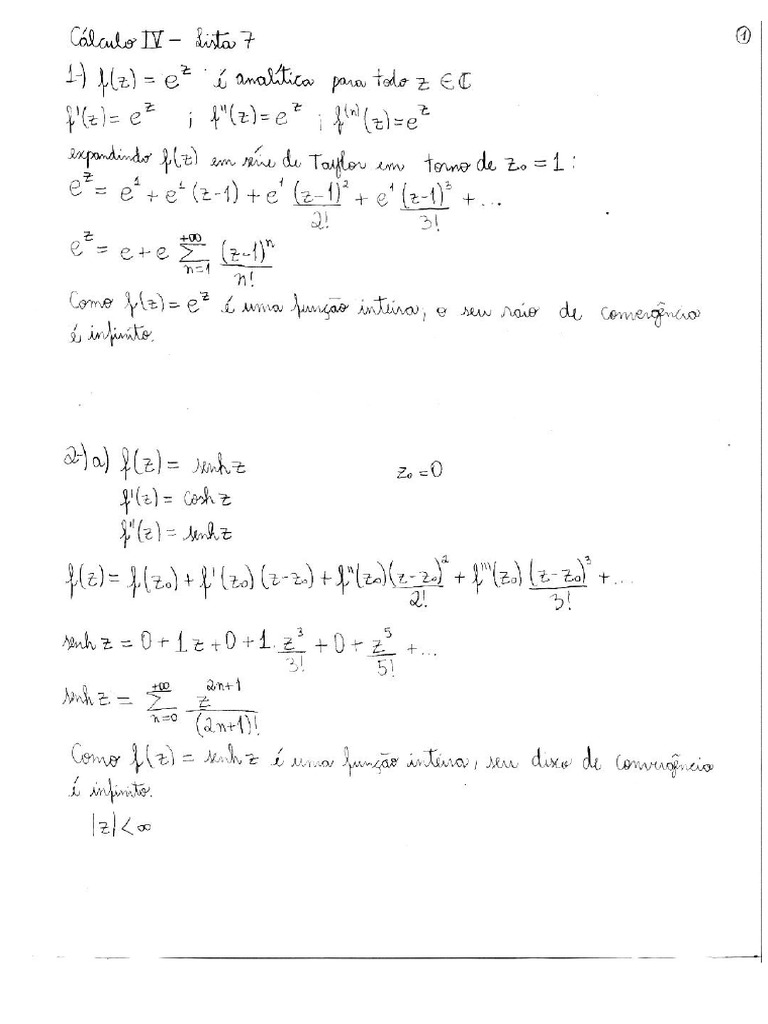 Cálculo IV – Lista 7 ①
1-) f(z) = e^z é analítica para todo z ∈ ℂ
f'(z) = e^z ; f''(z) = e^z ; f^(n)(z) = e^z
expandindo f(z) em série de Taylor em torno de z₀ = 1 :
e^z = e^1 + e^1 (z-1) + e^1 (z-1)^2/2! + e^1 (z-1)^3/3! + ...
e^z = e + e ∑_{n=1}^{+∞} (z-1)^n/n!
Como f(z) = e^z é uma função inteira, o seu raio de convergência
é infinito.
2-) a) f(z) = senh z z₀ = 0
f'(z) = cosh z
f''(z) = senh z
f(z) = f(z₀) + f'(z₀) (z-z₀) + f''(z₀) (z-z₀)^2/2! + f'''(z₀) (z-z₀)^3/3! + ...
senh z = 0 + 1z + 0 + 1. z^3/3! + 0 + z^5/5! + ...
senh z = ∑_{n=0}^{+∞} z^{2n+1}/(2n+1)!
Como f(z) = senh z é uma função inteira, seu disco de convergência
é infinito.
|z| < ∞